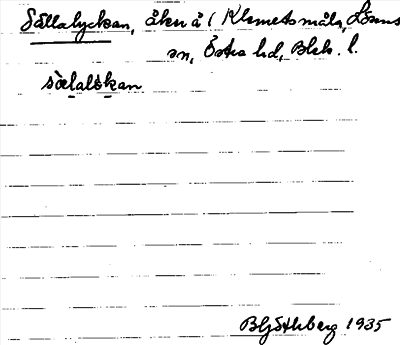 Sållalyckan, åker å 1 Klemetsmåla, Lösens
sn, Östra hd, Blek. l.
sålalökan
B Ljöstlberg 1935